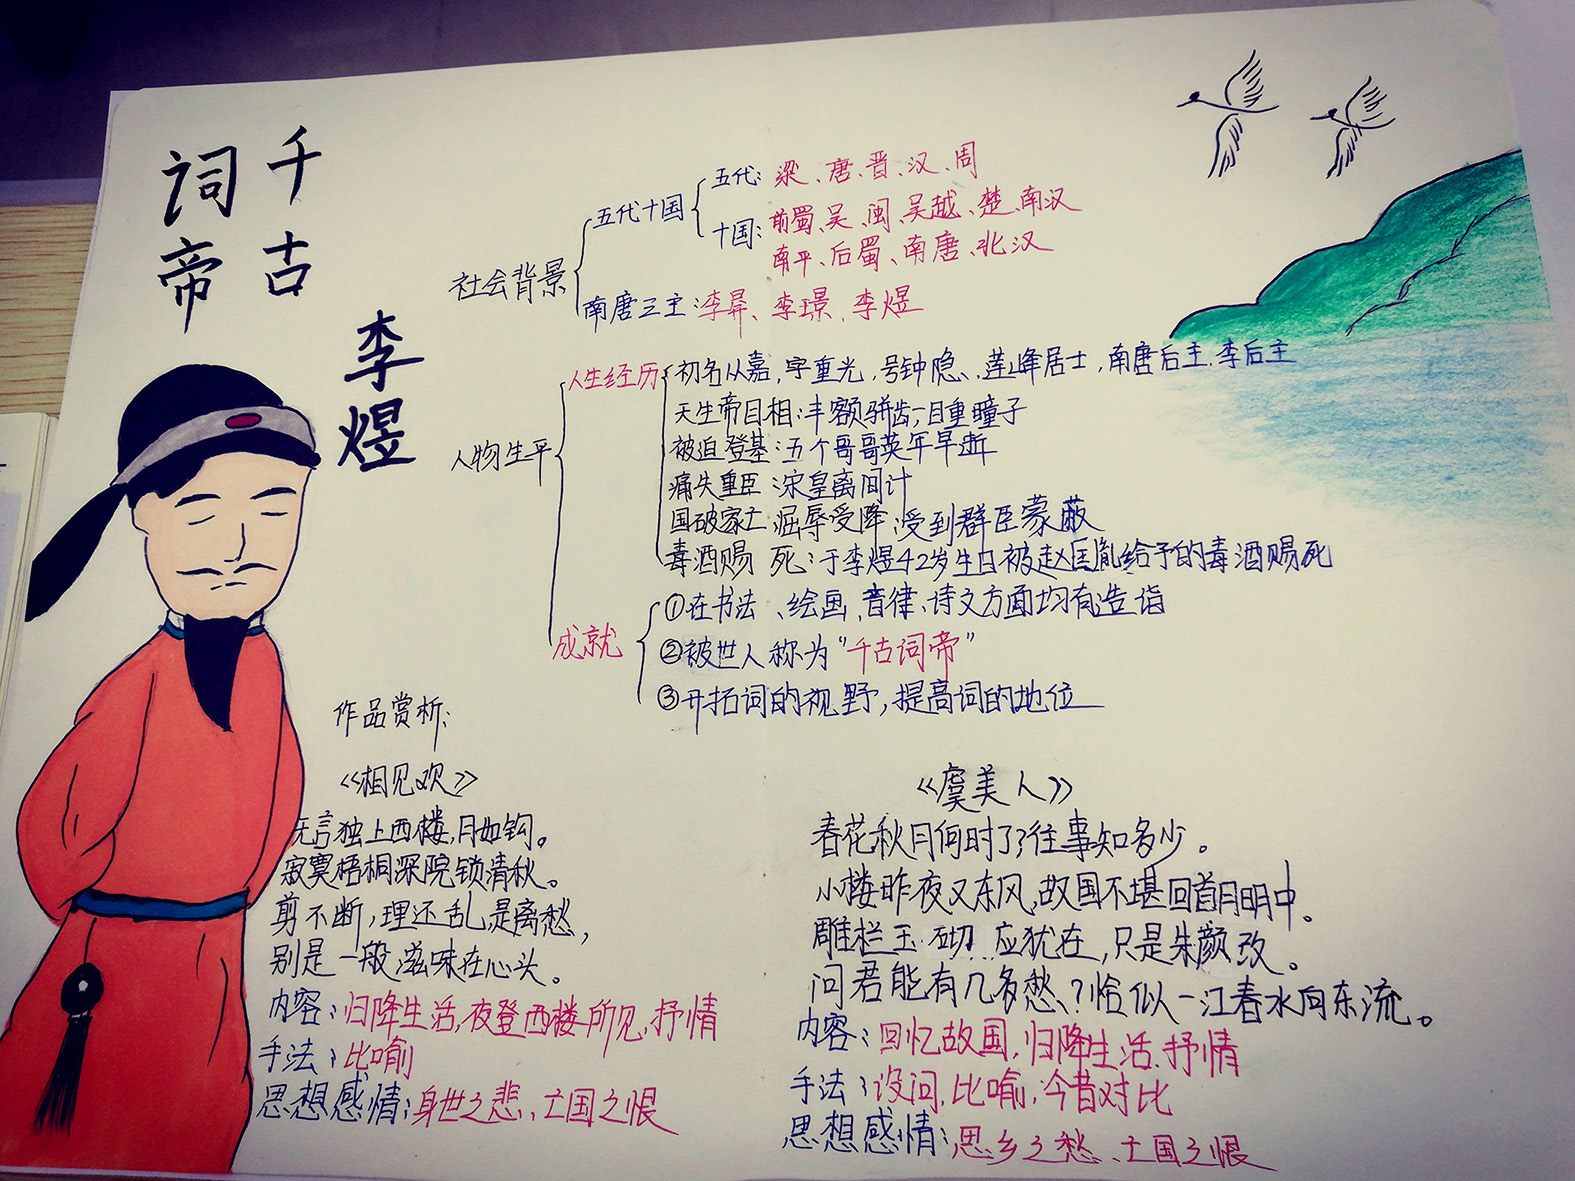 千古
词帝
李煜
社会背景
五代十国
五代：梁、唐、晋、汉、周
十国：前蜀、吴、闽、吴越、楚、南汉
南平、后蜀、南唐、北汉
南唐三主：李昪、李璟、李煜
人物生平
人生经历
初名从嘉，字重光，号钟隐、莲峰居士，南唐后主，李后主
天生帝目相：丰额骈齿，一目重瞳子
被迫登基：五个哥哥英年早逝
痛失重臣：宋皇离间计
国破家亡：屈辱受降，受到群臣蒙蔽
毒酒赐死：于李煜42岁生日被赵匡胤给予的毒酒赐死
成就
①在书法、绘画，音律、诗文方面均有造诣
②被世人称为“千古词帝”
③开拓词的视野，提高词的地位
作品赏析：
《相见欢》
无言独上西楼，月如钩。
寂寞梧桐深院锁清秋。
剪不断，理还乱，是离愁，
别是一般滋味在心头。
内容：归降生活，夜登西楼所见，抒情
手法：比喻
思想感情：身世之悲、亡国之恨
《虞美人》
春花秋月何时了，往事知多少。
小楼昨夜又东风，故国不堪回首月明中。
雕栏玉砌应犹在，只是朱颜改。
问君能有几多愁？恰似一江春水向东流。
内容：回忆故国，归降生活，抒情
手法：设问，比喻，今昔对比
思想感情：思乡之愁、亡国之恨